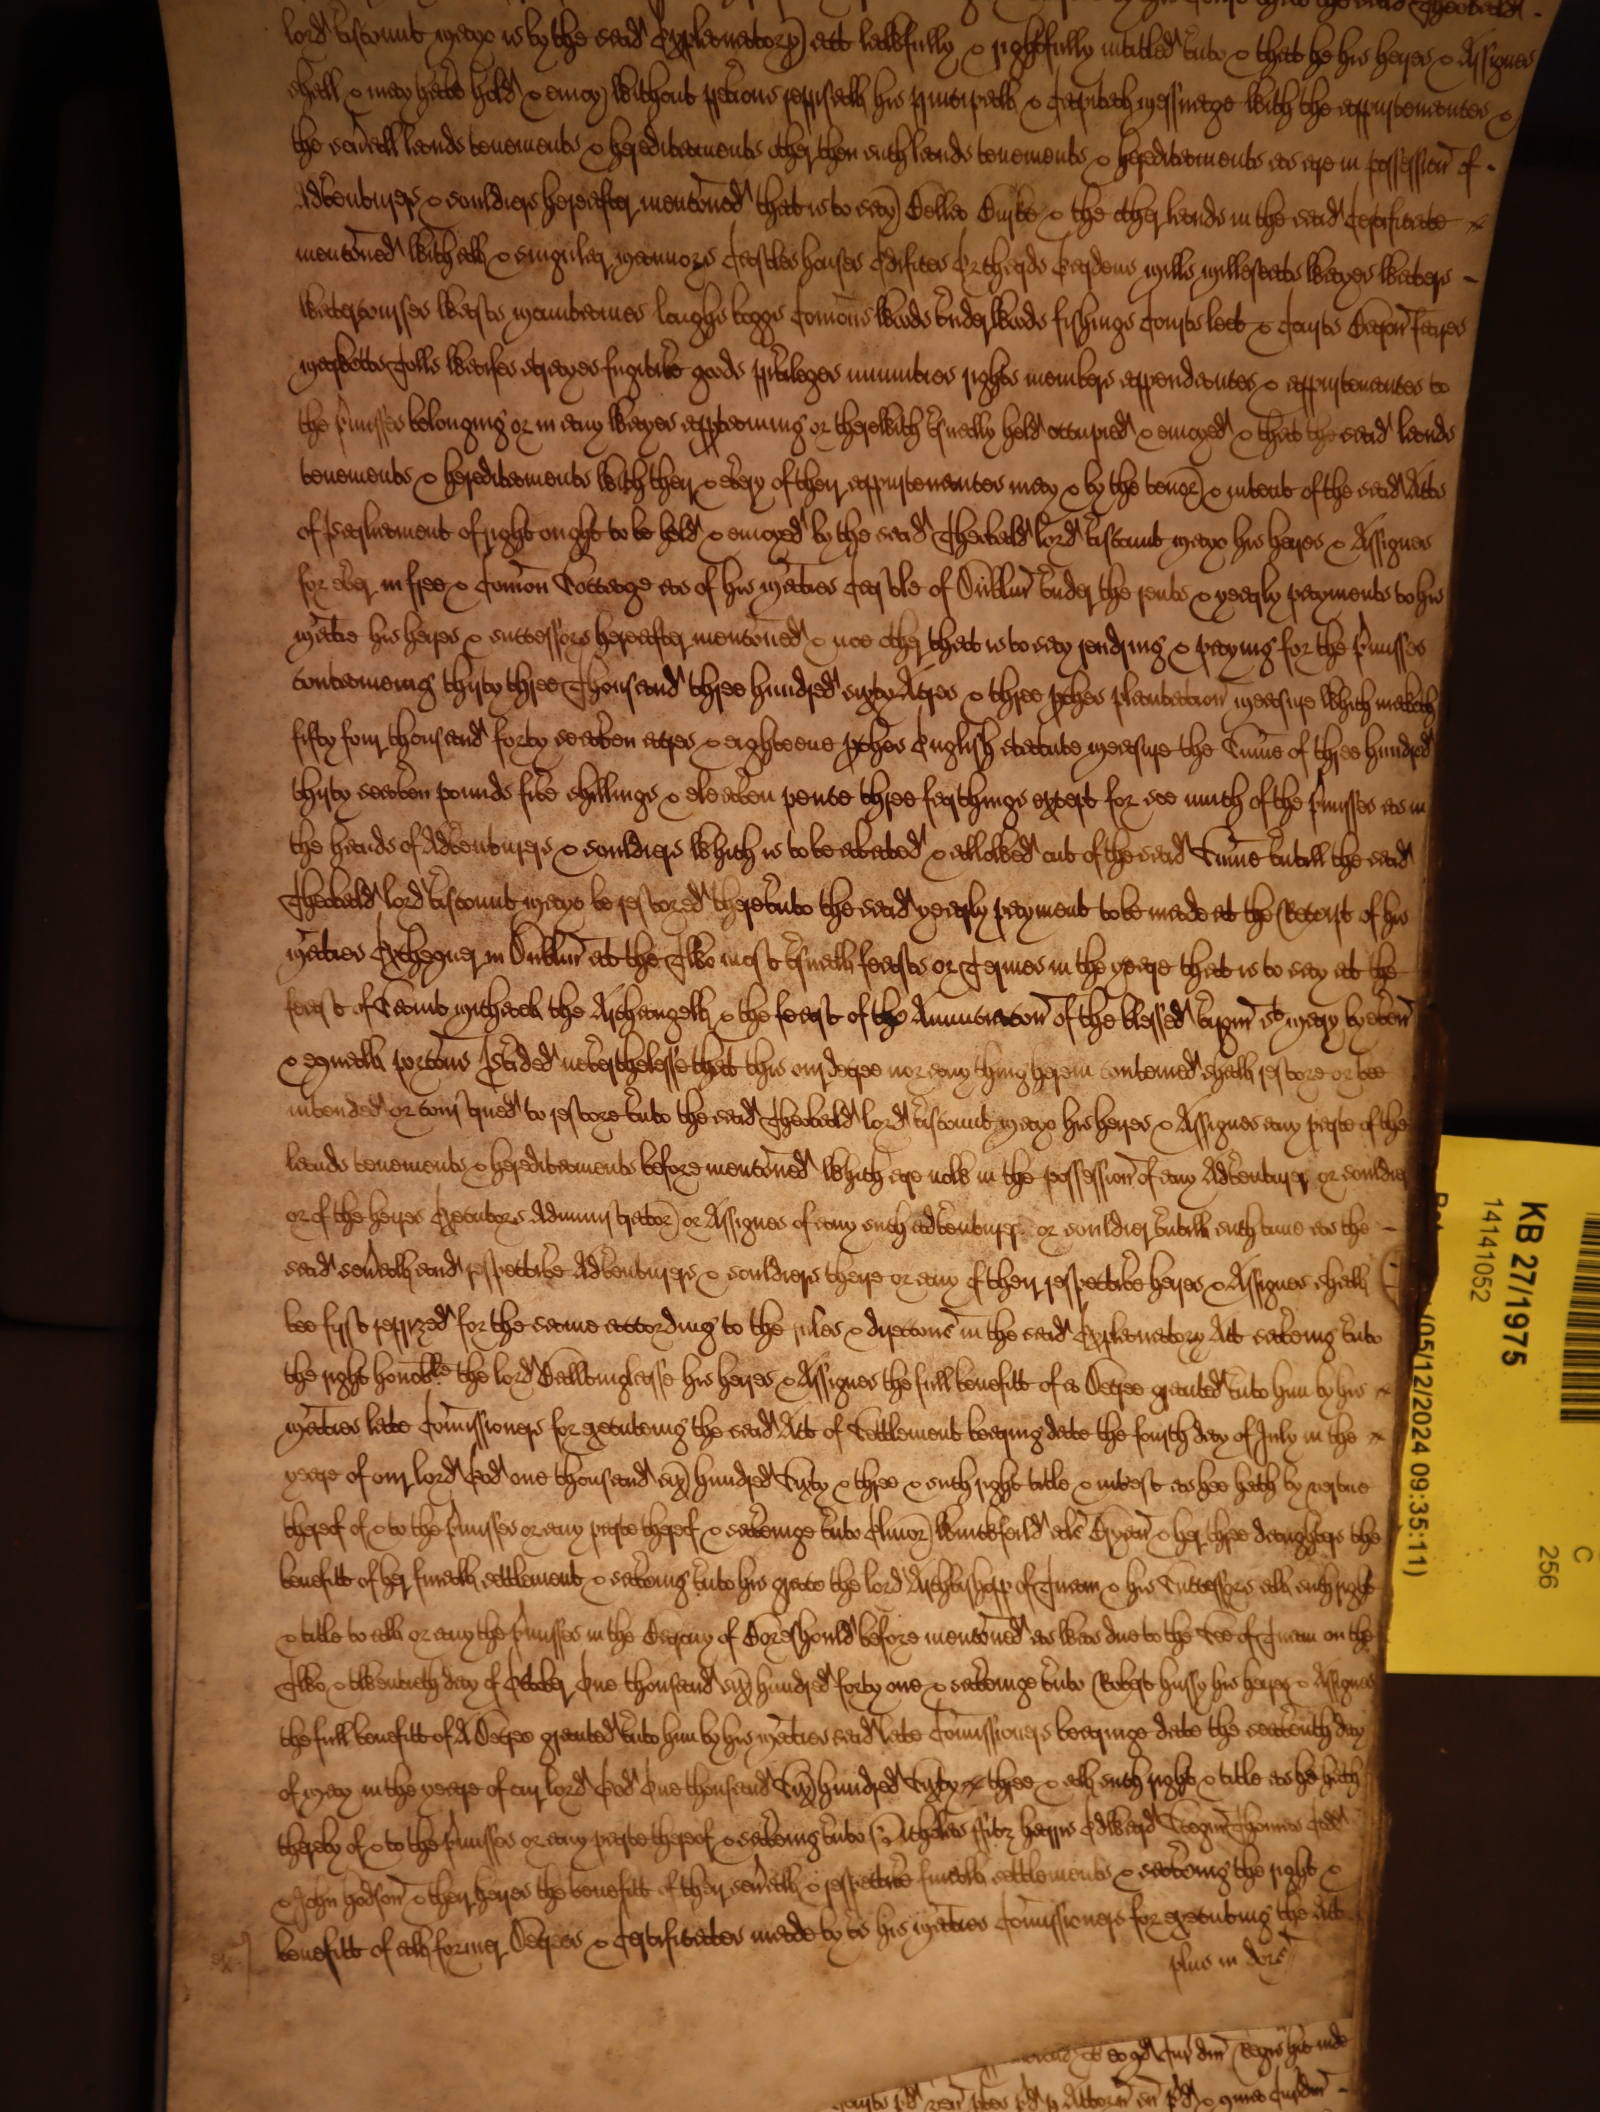 lord viscount Mayo is by the said Explanatory Act lawfully & rightfully intitled unto & that he his heires & Assignes
shall & may have hold & enioy without previous reprisall his principall & Capitall Messuage with the appurtenances &
the severall lands tenements & hereditaments other then such lands tenements & hereditaments as are in possession of
Adventurers & souldiers hereafter mentoned that is to say Bellas the other lands in the said Certificate
mentoned with all & singuler Mannors Castles houses Edifices Orchards Gardens Mills Millseats Wayes Waters
Watercourses Wasts Mountaines loughs boggs Comons Woods Underwoods fishings Courts leet & Courts Baron faires
Marketts Tolls Waifes strayes fugitive goods priviledges imunities rights members appendantes & appurtenantes to
the p'misses belonging or in any wayes apptaining or therewith usually held occupied & enioyed & that the said lands
tenements & hereditaments with their & every of their appurtenantes may & by the tenor & intent of the said Acts
of Parliament of right ought to be held & enioyed by the said Theobald lord viscount Mayo his heires & Assignes
for ever in free & Comon Soccage as of his Maties Castle of Dublin under the rents & yearly payments to his
Matie his heires & successors hereafter mentoned & noe other that is to say rendring & paying for the p'misses
contaneing thirty three Thousand three hundred sixty Acres & three pches plantation measure which maketh
fifty four thousand forty seaven acres & eighteene pches English statute measure the Sume of three hundred
thirty seaven pounds five shillings & eleaven pence three farthings except for soe much of the p'misses as in
the hands of Adventurers & souldiers which is to be abated & allowed out of the said Sume untill the said
Theobald lord viscount Mayo be restored thereunto the said yearly payment to be made at the Receipt of his
Maties Exchequer in Dublin at the Two most usuall feasts or Termes in the yeare that is to say at the
feast of Saint Michaell the Archangell & the feast of the Annunciacon of the blessed virgin St Mary by even
& equall portons Pvided neverthelesse that this our decree nor any thing herein conteined shall restore or bee
intended or construed to restore unto the said Theobald lord viscount Mayo his heires & Assignes any parte of the
lands tenements & hereditaments before mentoned which are now in the possession of any Adventurer or souldier
or of the heires Executors Administrators or Assignes of any such adventurer or souldier untill such time as the
said severall and respective Adventurers & souldiers there or any of their respective heires & Assignes shall
bee first reprized for the same according to the rules & directons in the said Explanatory Act saveing unto
the right honoble the lord Baltinglasse his heires & Assignes the full benefitt of a Decree granted unto him by his
Maties late Comissioners for executeing the said Act of Settlement beareing date the fourth day of July in the
yeare of our lord God one thousand six hundred Sixty & three & such right title & interest as hee hath by vertue
thereof of & to the p'misses or any parte thereof & saveinge unto Elinor als & her three daughters the
benefitt of her finall settlement & saveing unto his grace the lord Archbishopp of Tuam & his Successors all such right
& title to all or any the p'misses in the Barony of before mentoned as was due to the See of Tuam on the
Two & twentieth day of October One thousand six hundred forty one & saveinge unto Robert hussy his heires & Assignes
the full benefitt of A Decree granted unto him by his Maties said late Comissioners bearinge date the seaventh day
of May in the yeare of our lord God One thousand Six hundred Sixty & three & all such right & title as he hath
thereby of & to the p'misses or any parte thereof & saveing unto Nicholas Fitz harris Edward Thomas
& John hodson & their heires the benefitt of their severall & respective finall settlements & saveing the right &
benefitt of all former Decrees & Certificates made by us his Maties Comissioners for executing the Act
plus in dors
KB 27/1975
14141052
C
256
/05/12/2024 09:35:11)